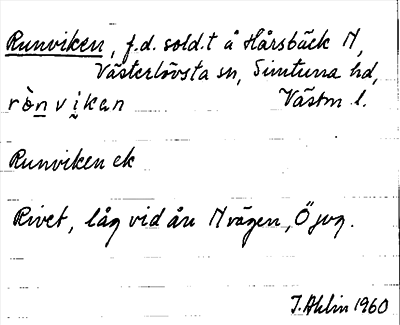 Runviken, f.d. sold.t å Hårsbäck N,
Västerlövsta sn, Simtuna hd,
rò̱nvi̱kan Västm l.
Runviken ek
Rivet, låg vid ån N vägen, Ö jvg.
I. Ahlin 1960